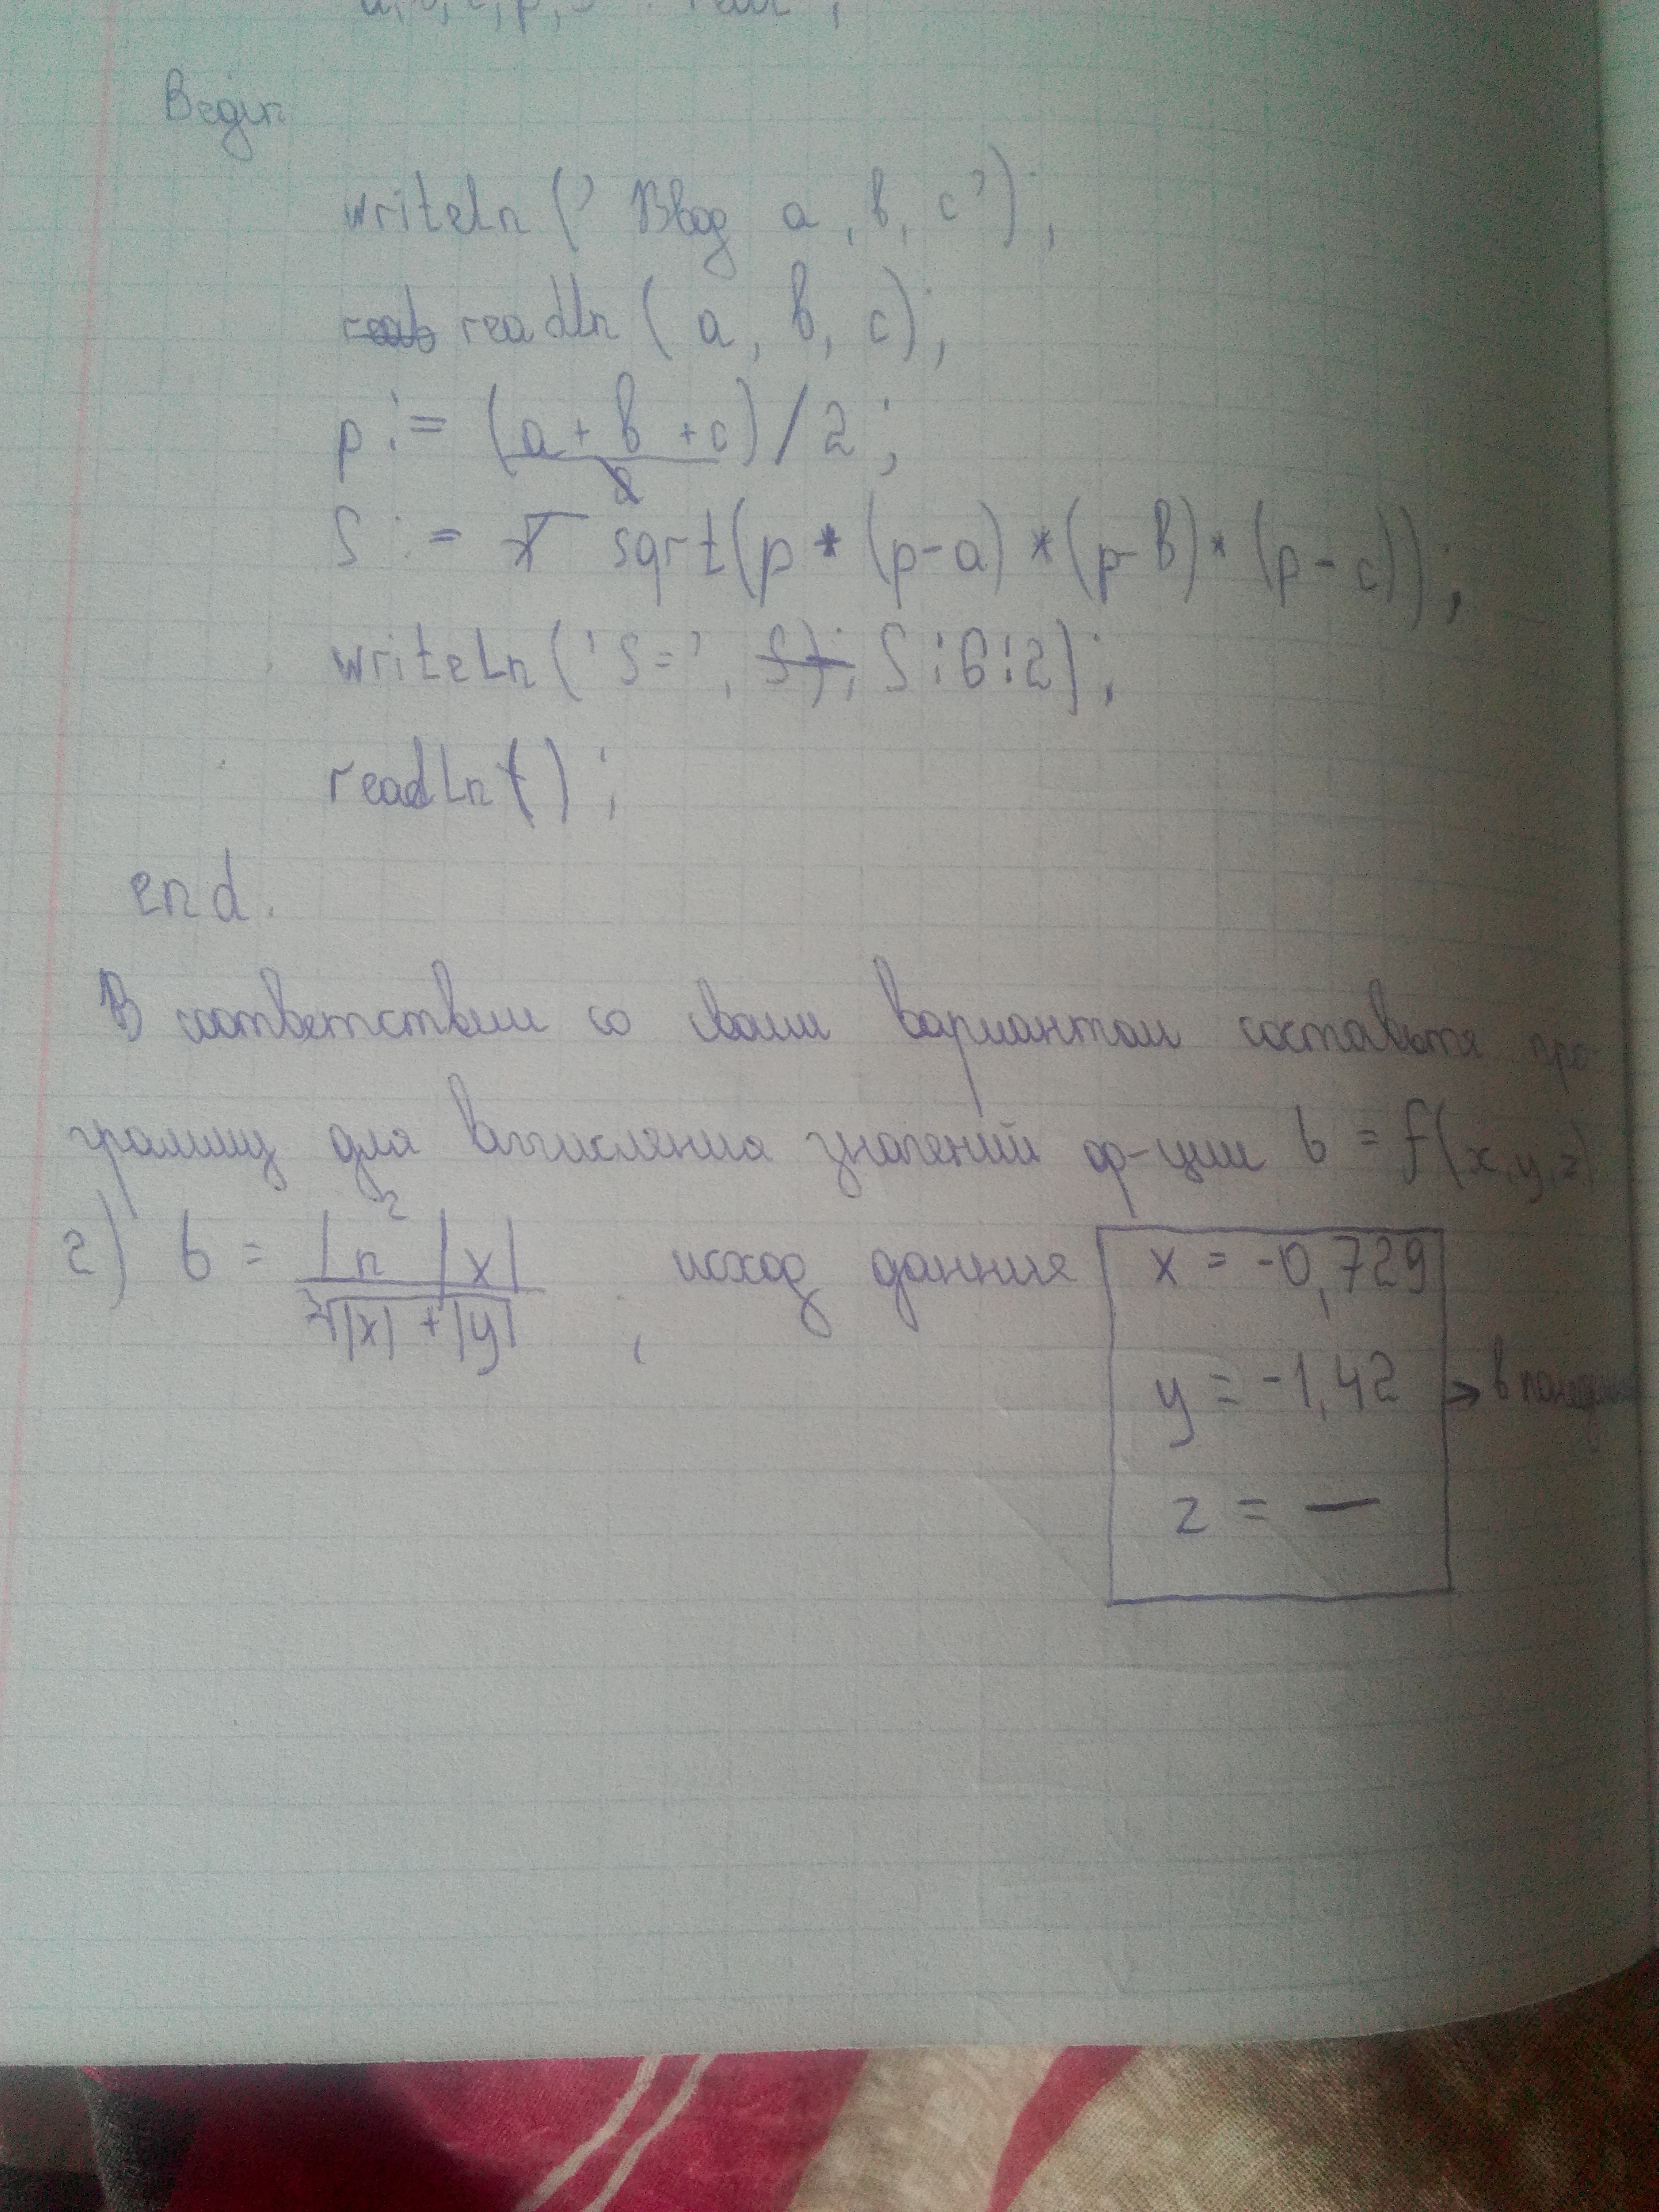 a, b, c, p, S : real ;
Begin
writeln (' Ввод a, b, c') ;
readln ( a, b, c) ;
p := (a + b + c) / 2 ;
S := sqrt(p * (p-a) * (p-b) * (p-c)) ;
writeLn (' S= ', S:6:2) ;
readLn ( ) ;
end.
В соответствии со своим вариантом составьте про-
грамму для вычисления значений ф-ции b = f(x, y, z)
2) b = ln² |x| / ³√|x| + |y| , исход данние x = -0,729
y = -1,42 → в
z = —